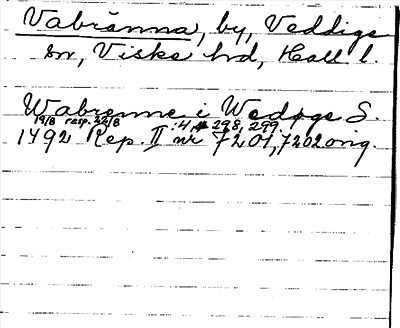 Vabränna, by, Veddige
sn, Viske hd, Hall l.
Wabrenne i Wedøge S.
19/8 resp. 22/8 :4 298, 299
1492 Rep. II nr 7201, 7202 orig.